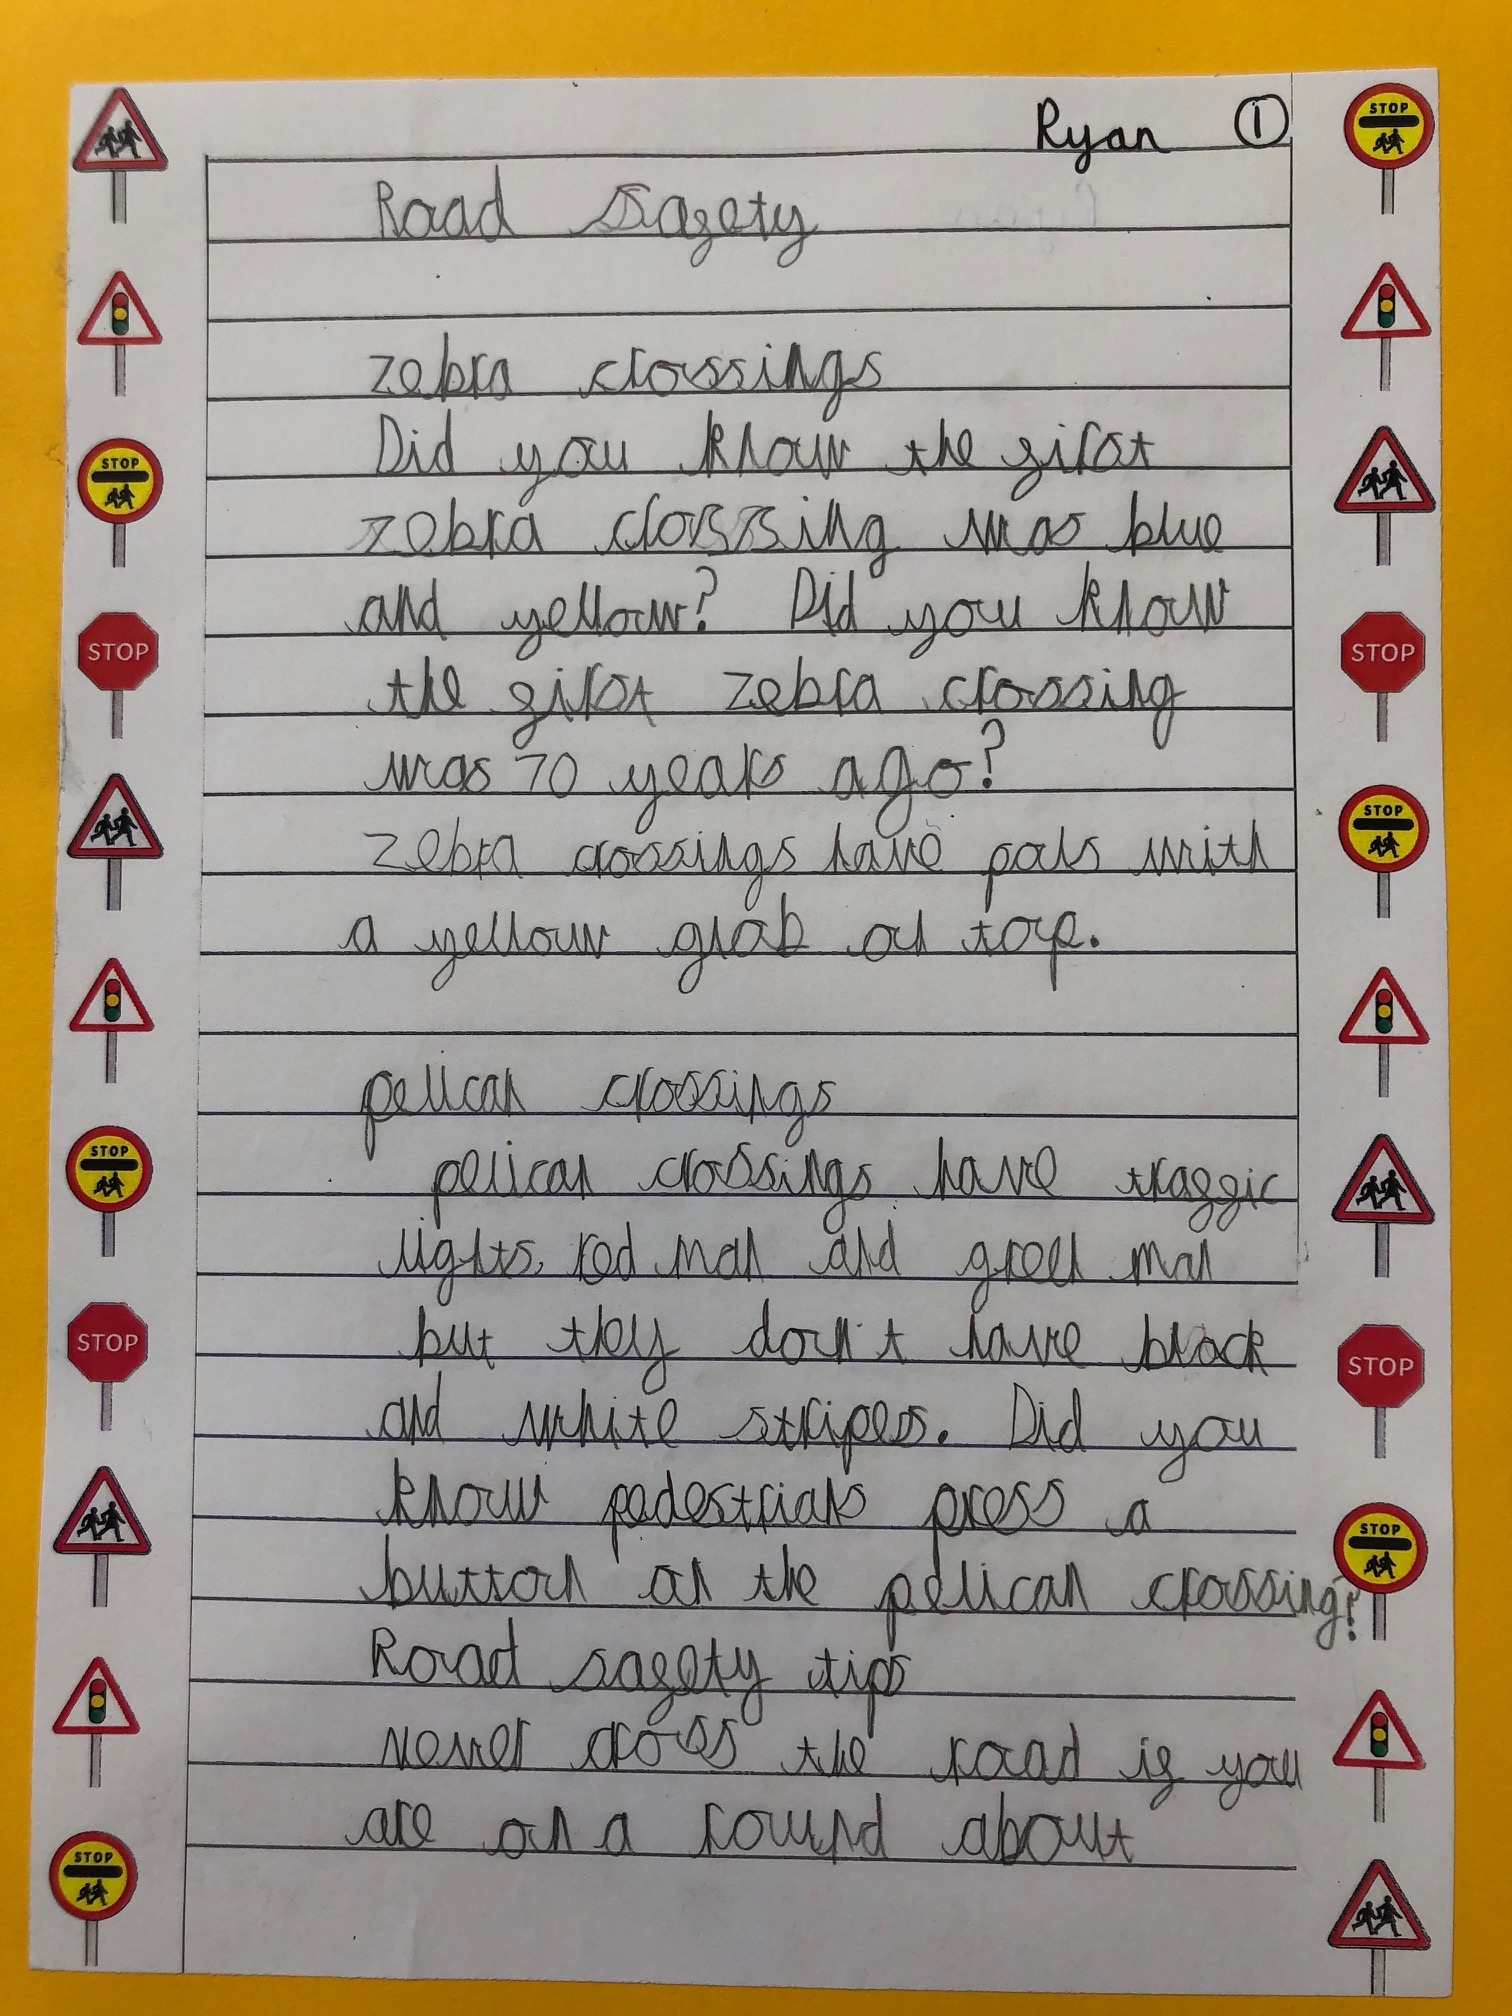 Ryan ①
Road Safety
zebra crossings
Did you know the first
zebra crossing was blue
and yellow? Did you know
the first zebra crossing
was 70 years ago?
zebra crossings have pols with
a yellow glob on top.
pelican crossings
pelican crossings have traffic
lights, red man and green man
but they don't have black
and white stripes. Did you
know pedestrians press a
button on the pelican crossing?
Road safety tips
never cross the road if you
are on a round about
STOP
STOP
STOP
STOP
STOP
STOP
STOP
STOP
STOP
STOP